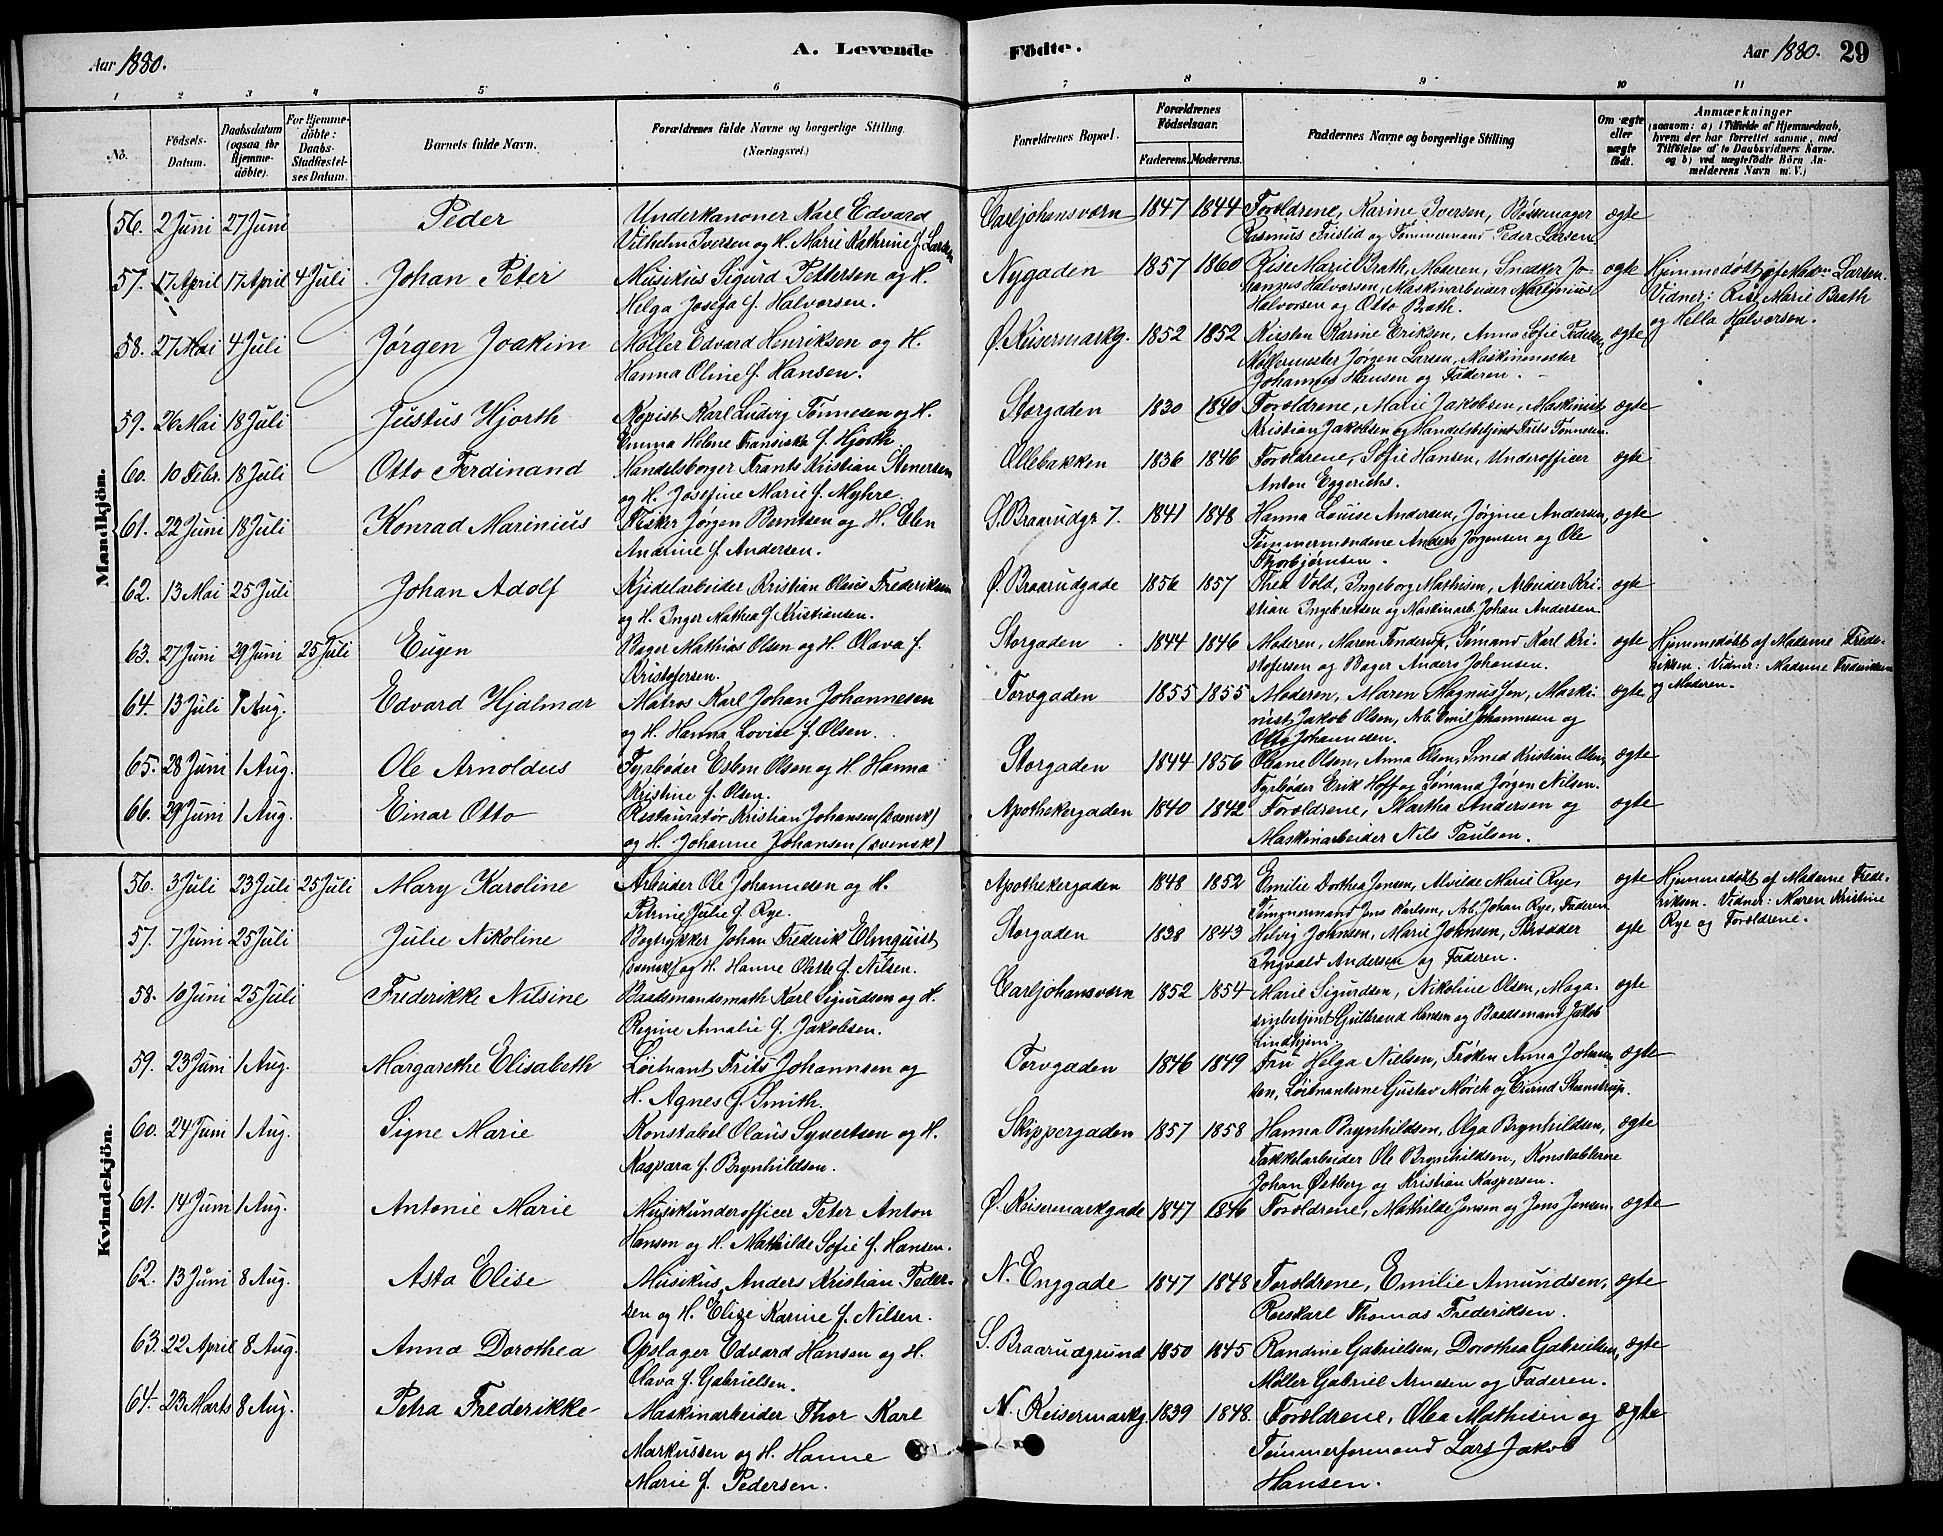 Aar 1880.
A. Levende
Födte.
Aar 1880.
29
1 2 3 4 5 6 7 8 9 10 11
No.
Födsels-Datum.
Daabsdatum (ogsaa for Hjemme-döbte).
For Hjemme-döbte: Daabs-Stadfæstel-ses Datum.
Barnets fulde Navn.
Forældrenes fulde Navne og borgerlige Stilling. (Næringsvei.)
Forældrenes Bopæl.
Forældrenes Födselsaar.
Faderens. Moderens.
Faddernes Navne og borgerlige Stilling
Om ægte eller uægte födt.
Anmærkninger
(saasom: a) i Tilfælde af Hjemmedaab, hvem der har forrettet samme, med Tilföielse af to Daabsvidners Navne, og b) ved uægtefödte Börn Anmelderens Navn m. V.)
Mandkjön.
56. 2 Juni 27 Juni Peder Underkanoner Karl Edvard Carljohansværn 1847 1844 Forældrene, Karine Iversen, Bøssemager ægte
Vilhelm Iversen og H. Marie Kathrine f. Larsen Rasmus Fristid og Tømmermand Peder Larsen
57. 17 April 17 April 4 Juli Johan Peter Musikus Sigurd Pettersen og H. Nygaden 1857 1860 Rise Marie Brath, Moderen, Snedker Jo- ægte Hjemmedøbt af Madm Larsen.
Helga Josefa f. Halvorsen. hannes Halvorsen, Maskinarbeider Martinius Vidner: Rise Marie Brath
Halvorsen og Otto Brath. og Hella Halvorsen.
58. 27 Mai 4 Juli Jørgen Joakim Møller Edvard Henriksen og H. Ø. Keisermarkg. 1852 1852 Kirsten Karine Eriksen, Anna Sofie Pedersen, ægte
Hanna Oline f. Hansen. Møllermester Jørgen Larsen, Maskinmester
Johannes Hansen og Faderen.
59. 26 Mai 18 Juli Justus Hjorth Kopist Karl Ludvig Tønnesen og H. Storgaden 1830 1840 Forældrene, Marie Jakobsen, Maskinist ægte
Emma Helene Fransiska f. Hjorth. Kristian Jakobsen og Handelsbetjent Frits Tønnesen.
60. 10 Febr. 18 Juli Otto Ferdinand Handelsborger Frants Kristian Stenersen Ollebakken 1836 1846 Forældrene, Sofie Hansen, Underofficer ægte
og H. Josefine Marie f. Myhre. Anton Eggerichs.
61. 22 Juni 18 Juli Konrad Marinius Fisker Jørgen Berntsen og H. Elen S. Braarudgr 7. 1841 1848 Hanna Louise Andersen, Jørgine Andersen, ægte
Andrine f. Andersen. Tømmermændene Anders Jørgensen og Ole
Thorbjørnsen.
62. 13 Mai 25 Juli Johan Adolf Kjedelarbeider Kristian Olaus Frederiksen Ø. Braarudgade 1856 1857 Thea Vold, Ingeborg Mathisen, Arbeider Kri- ægte
og H. Inger Mathea f. Kristiansen. stian Ingebretsen og Maskinarb. Johan Andersen.
63. 27 Juni 29 Juni 25 Juli Eugen Bager Mathias Olsen og H. Olava f. Storgaden 1844 1846 Moderen, Maren Finderup, Sømand Karl Kri- ægte Hjemmedøbt af Madame Frede-
Kristofersen. stofersen og Bager Anders Johansen. riksen. Vidner: Madame Frederiksen
og Moderen.
64. 13 Juli 1 Aug. Edvard Hjalmar Matros Karl Johan Johannesen Torvgaden 1855 1855 Moderen, Maren Magnussen, Maski- ægte
og H. Hanna Lovise f. Olsen. nist Jakob Olsen, Arb. Emil Johannesen og
Otto Johannesen.
65. 28 Juni 1 Aug. Ole Arnoldus Fyrbøder Esben Olsen og H. Hanna Storgaden 1844 1856 Oleane Olsen, Anna Olsen, Smed Kristian Olsen, ægte
Kristine f. Olsen. Fyrbøder Erik Hoff og Sømand Jørgen Nilsen.
66. 29 Juni 1 Aug. Einar Otto Restauratør Kristian Johansen (svensk) Apothekergaden 1840 1842 Forældrene, Martha Andersen og ægte
og H. Johanne Johansen (svensk) Maskinarbeider Nils Paulsen.
Kvindekjön.
56. 3 Juli 23 Juli 25 Juli Mary Karoline Arbeider Ole Johannesen og H. Apothekergaden 1848 1852 Emilie Dorthea Jensen, Alvilde Marie Rye, ægte Hjemmedøbt af Madame Frede-
Petrine Julie f. Rye. Tømmermand Jens Karlsen, Arb. Johan Rye, Faderen riksen. Vidner: Maren Kristine
Rye og Forældrene.
57. 7 Juni 25 Juli Julie Nikoline Bogtrykker Johan Frederik Elmquist Storgaden 1838 1843 Helvig Johnsen, Marie Johnsen, Skrædder ægte
(svensk) og H. Hanne Olette f. Nilsen. Ingvald Andersen og Faderen.
58. 10 Juni 25 Juli Frederikke Nilsine Baadsmandsmath Karl Sigurdsen og H. Carljohansværn 1852 1854 Marie Sigurdsen, Nikoline Olsen, Maga- ægte
Regine Amalie f. Jakobsen. sinbetjent Gulbrand Hansen og Baadsmand Jakob
Lindhjem.
59. 23 Juni 1 Aug. Margarethe Elisabeth Løitnant Frits Johannsen og Torvgaden 1846 1849 Fru Helga Nielsen, Frøken Anna Johann- ægte
H. Agnes f. Smith. sen, Løitnanterne Gustav Mørch og Eivind Steenstrup.
60. 24 Juni 1 Aug. Signe Marie Konstabel Olaus Syvertsen og H. Skippergaden 1857 1858 Hanna Brynhildsen, Olga Brynhildsen, ægte
Kaspara f. Brynhildsen. Takkelarbeider Ole Brynhildsen, Konstablerne
Johan Østberg og Kristian Kaspersen.
61. 14 Juni 1 Aug. Antonie Marie Musikunderofficer Peter Anton Ø. Keisermarkgade 1847 1846 Forældrene, Mathilde Jensen og Jens Jensen. ægte
Hansen og H. Mathilde Sofie f. Hansen.
62. 13 Juni 8 Aug. Asta Elise Musikus Anders Kristian Peder- N. Enggade 1847 1848 Forældrene, Emilie Amundsen, ægte
sen og H. Elise Karine f. Nilsen. Rorskarl Thomas Frederiksen.
63. 22 April 8 Aug. Anna Dorothea Opslager Edvard Hansen og H. S. Braarudgrund 1850 1845 Randine Gabrielsen, Dorothea Gabrielsen, ægte
Olava f. Gabrielsen. Møller Gabriel Arnesen og Faderen.
64. 23 Marts 8 Aug. Petra Frederikke Maskinarbeider Thor Karl N. Keisermarkg. 1839 1848. Forældrene, Olea Mathisen og ægte
Markussen og H. Hanne Tømmerformand Lars Jakob
Marie f. Pedersen. Hansen.